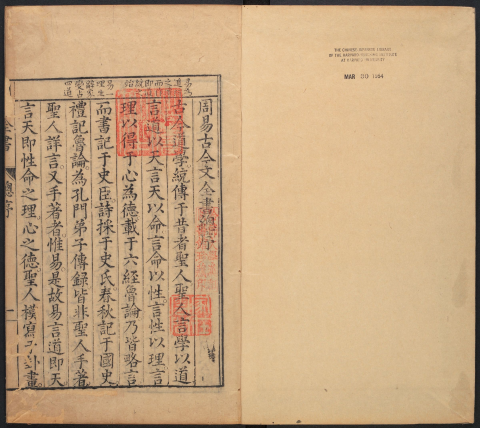 周易古今文全書總序
古今道學統傳于昔者聖人聖人言學以道
言道以天言天以命言命以性言性以理言
理以得于心為德載于六經魯論乃皆略言
而書記于史臣詩採于史氏春秋記于國史
禮記魯論為孔門弟子傳錄皆非聖人手著
聖人詳言又手著者惟易是故易言道即天
言天即性命之理心之德聖人模寫于卦畫
全書
總序
一
MAR 20 1964